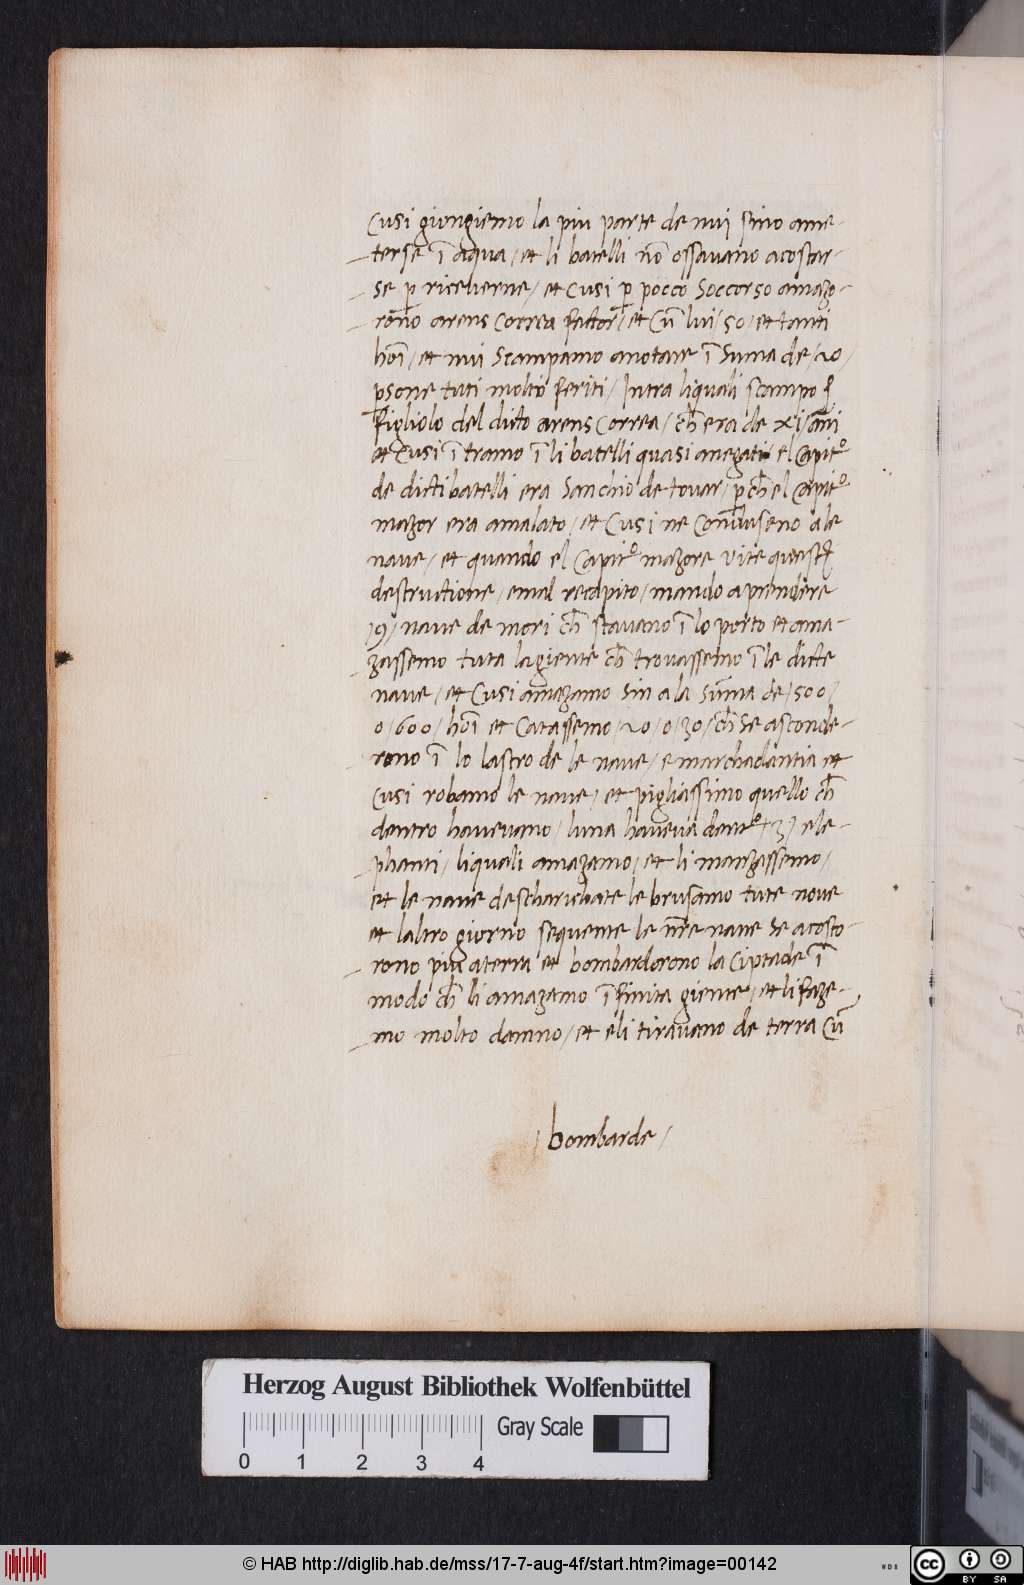 Cusi giongiemo la piu parte de nui sino ame-
terse ī aqua / et li batelli nō ossavano acostar-
se p̱ riceverne / et Cusi p̱ pocco Soccorso amazo-
rono arens Correa factor / et Cū lui / 50 / et tanti
hoī / et nui Scampamo anotare ī Suma de / 20 /
p̱sone tuti molto feriti / Intra liquali scampo
figliolo del dicto arens Correa / ch̄ era de XI / āni
et Cusi ītramo ī li batelli quasi anegati / el Capitº
de dicti batelli era Sanchio de tovar / p̱ch̄ el Capitº
mazor era amalato / et Cusi ne Conduseno a le
nave / et quando el Capitº mazore vite
destructione / e mal recapito / mando a prendere
/ 9 / nave de mori ch̄ stavano ī lo porto et ama-
zassemo tuta la giente ch̄ trovassemo ī le dicte
nave / et Cusi amazamo Sin a la Sūma de / 500 /
o / 600 / hoī et Catassemo / 20 / o / 30 / ch̄ Se asconde-
rono ī lo lastro de le nave / e marchadantia et
Cusi robamo le nave / et pigliassimo quello ch̄
dentro havevano / luna haveva dentº / 3 / ele-
phanti / liquali amazamo / et li manzassemo /
et le nave descharichate le brusamo tute nove
et laltro giorno sequente le nr̄e nave Se acosto-
rono piu a terra et bombardorono la Ciptade ī
modo ch̄ li amazamo īfinita giente / et li faze-
mo molto damno / et eli tiravano de terra Cū
/ bombarde /
Herzog August Bibliothek Wolfenbüttel
Gray Scale
0 1 2 3 4
© HAB http://diglib.hab.de/mss/17-7-aug-4f/start.htm?image=00142
WDB
cc BY SA